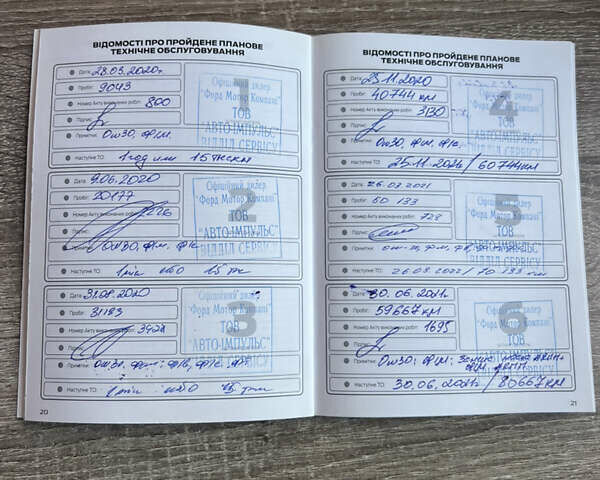 ВІДОМОСТІ ПРО ПРОЙДЕНЕ ПЛАНОВЕ
ТЕХНІЧНЕ ОБСЛУГОВУВАННЯ
Дата: 28.03.2020г.
Пробіг: 9043
Номер Акту виконаних робіт: 800
Підпис:
Примітки: Ом30, ф.м.
Наступне ТО: 1 год или 15 тыс км
1
Офіційний дилер
"Фора Мотор Компані"
ТОВ
"АВТО-ІМПУЛЬС"
ВІДДІЛ СЕРВІСУ
Дата: 9.06.2020
Пробіг: 20177
Номер Акту виконаних робіт:
Підпис:
Примітки: Ом30, фм. ф/с
Наступне ТО: 1 рік або 15 тк
2
Офіційний дилер
"Фора Мотор Компані"
ТОВ
"АВТО-ІМПУЛЬС"
ВІДДІЛ СЕРВІСУ
Дата: 31.08.2020
Пробіг: 31183
Номер Акту виконаних робіт: 3421
Підпис:
Примітки:
Наступне ТО: 1 рік або 15 ткм
3
Офіційний дилер
"Фора Мотор Компані"
ТОВ
"АВТО-ІМПУЛЬС"
ВІДДІЛ СЕРВІСУ
20
ВІДОМОСТІ ПРО ПРОЙДЕНЕ ПЛАНОВЕ
ТЕХНІЧНЕ ОБСЛУГОВУВАННЯ
Дата: 25.11.2020
Пробіг: 40744 км
Номер Акту виконаних робіт: 3130
Підпис:
Примітки: Ом30, фм, ф/с,
Наступне ТО: 25.11.2021 / 60744 км
4
Офіційний дилер
"Фора Мотор Компані"
ТОВ
"АВТО-ІМПУЛЬС"
ВІДДІЛ СЕРВІСУ
Дата: 26.03.2021
Пробіг: 50 133
Номер Акту виконаних робіт: 723
Підпис:
Примітки:
Наступне ТО: 26.03.2022 / 70 133 км
5
Офіційний дилер
"Фора Мотор Компані"
ТОВ
"АВТО-ІМПУЛЬС"
ВІДДІЛ СЕРВІСУ
Дата: 30.06.2021.
Пробіг: 59667 км
Номер Акту виконаних робіт: 1695
Підпис:
Примітки: Ом30; ф/м;
Наступне ТО: 30.06.2021 / 80667 км
6
Офіційний дилер
"Фора Мотор Компані"
ТОВ
"АВТО-ІМПУЛЬС"
ВІДДІЛ СЕРВІСУ
21